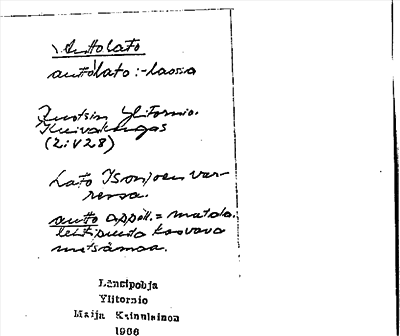 Auttolato
auttolato : -laossa
Ruotsin Ylitornio.
Kuivakangas
(2:V28)
Lato Isonjoen var-
ressa.
autto appell. = matala.
lehtipuuta kasvava
metsämaa.
Länsipohja
Ylitornio
Maija Kainulainen
1966